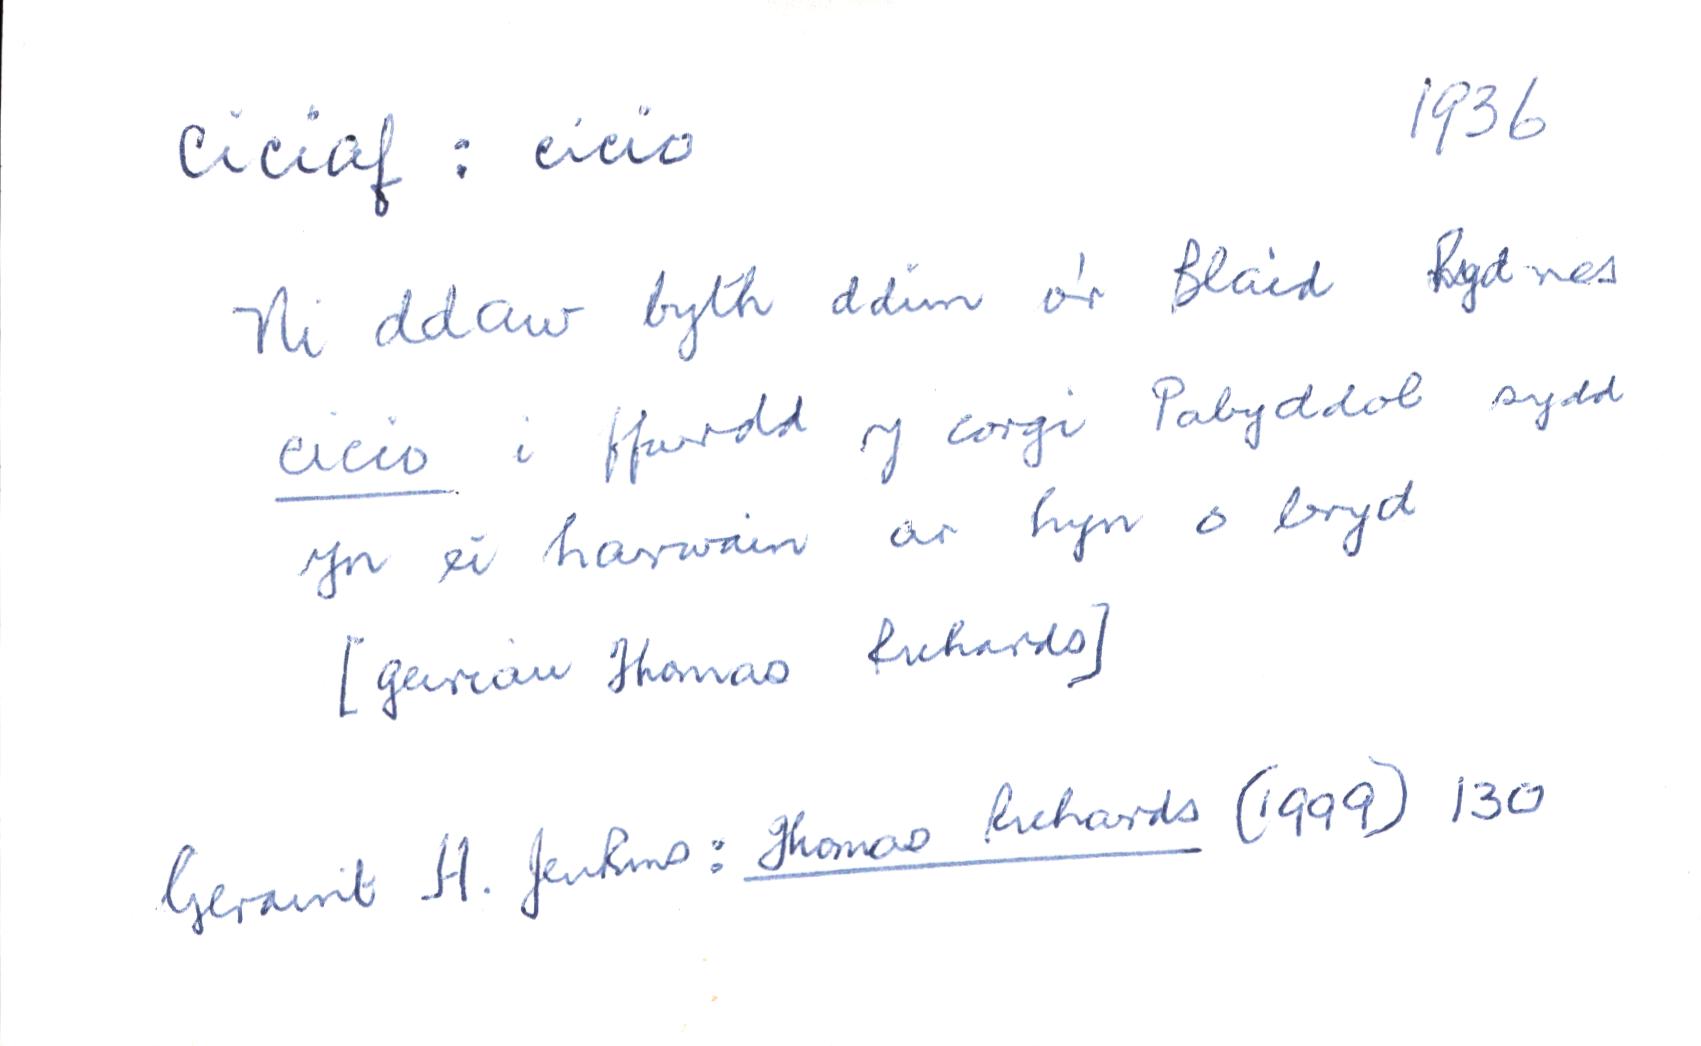 ciciaf : cicio 1936
Ni ddaw byth ddim o'r Blaid hyd nes
cicio i ffwrdd y corgi Pabyddol sydd
yn ei harwain ar hyn o bryd
[geiriau Thomas Richards]
Geraint H. Jenkins : Thomas Richards (1999) 130